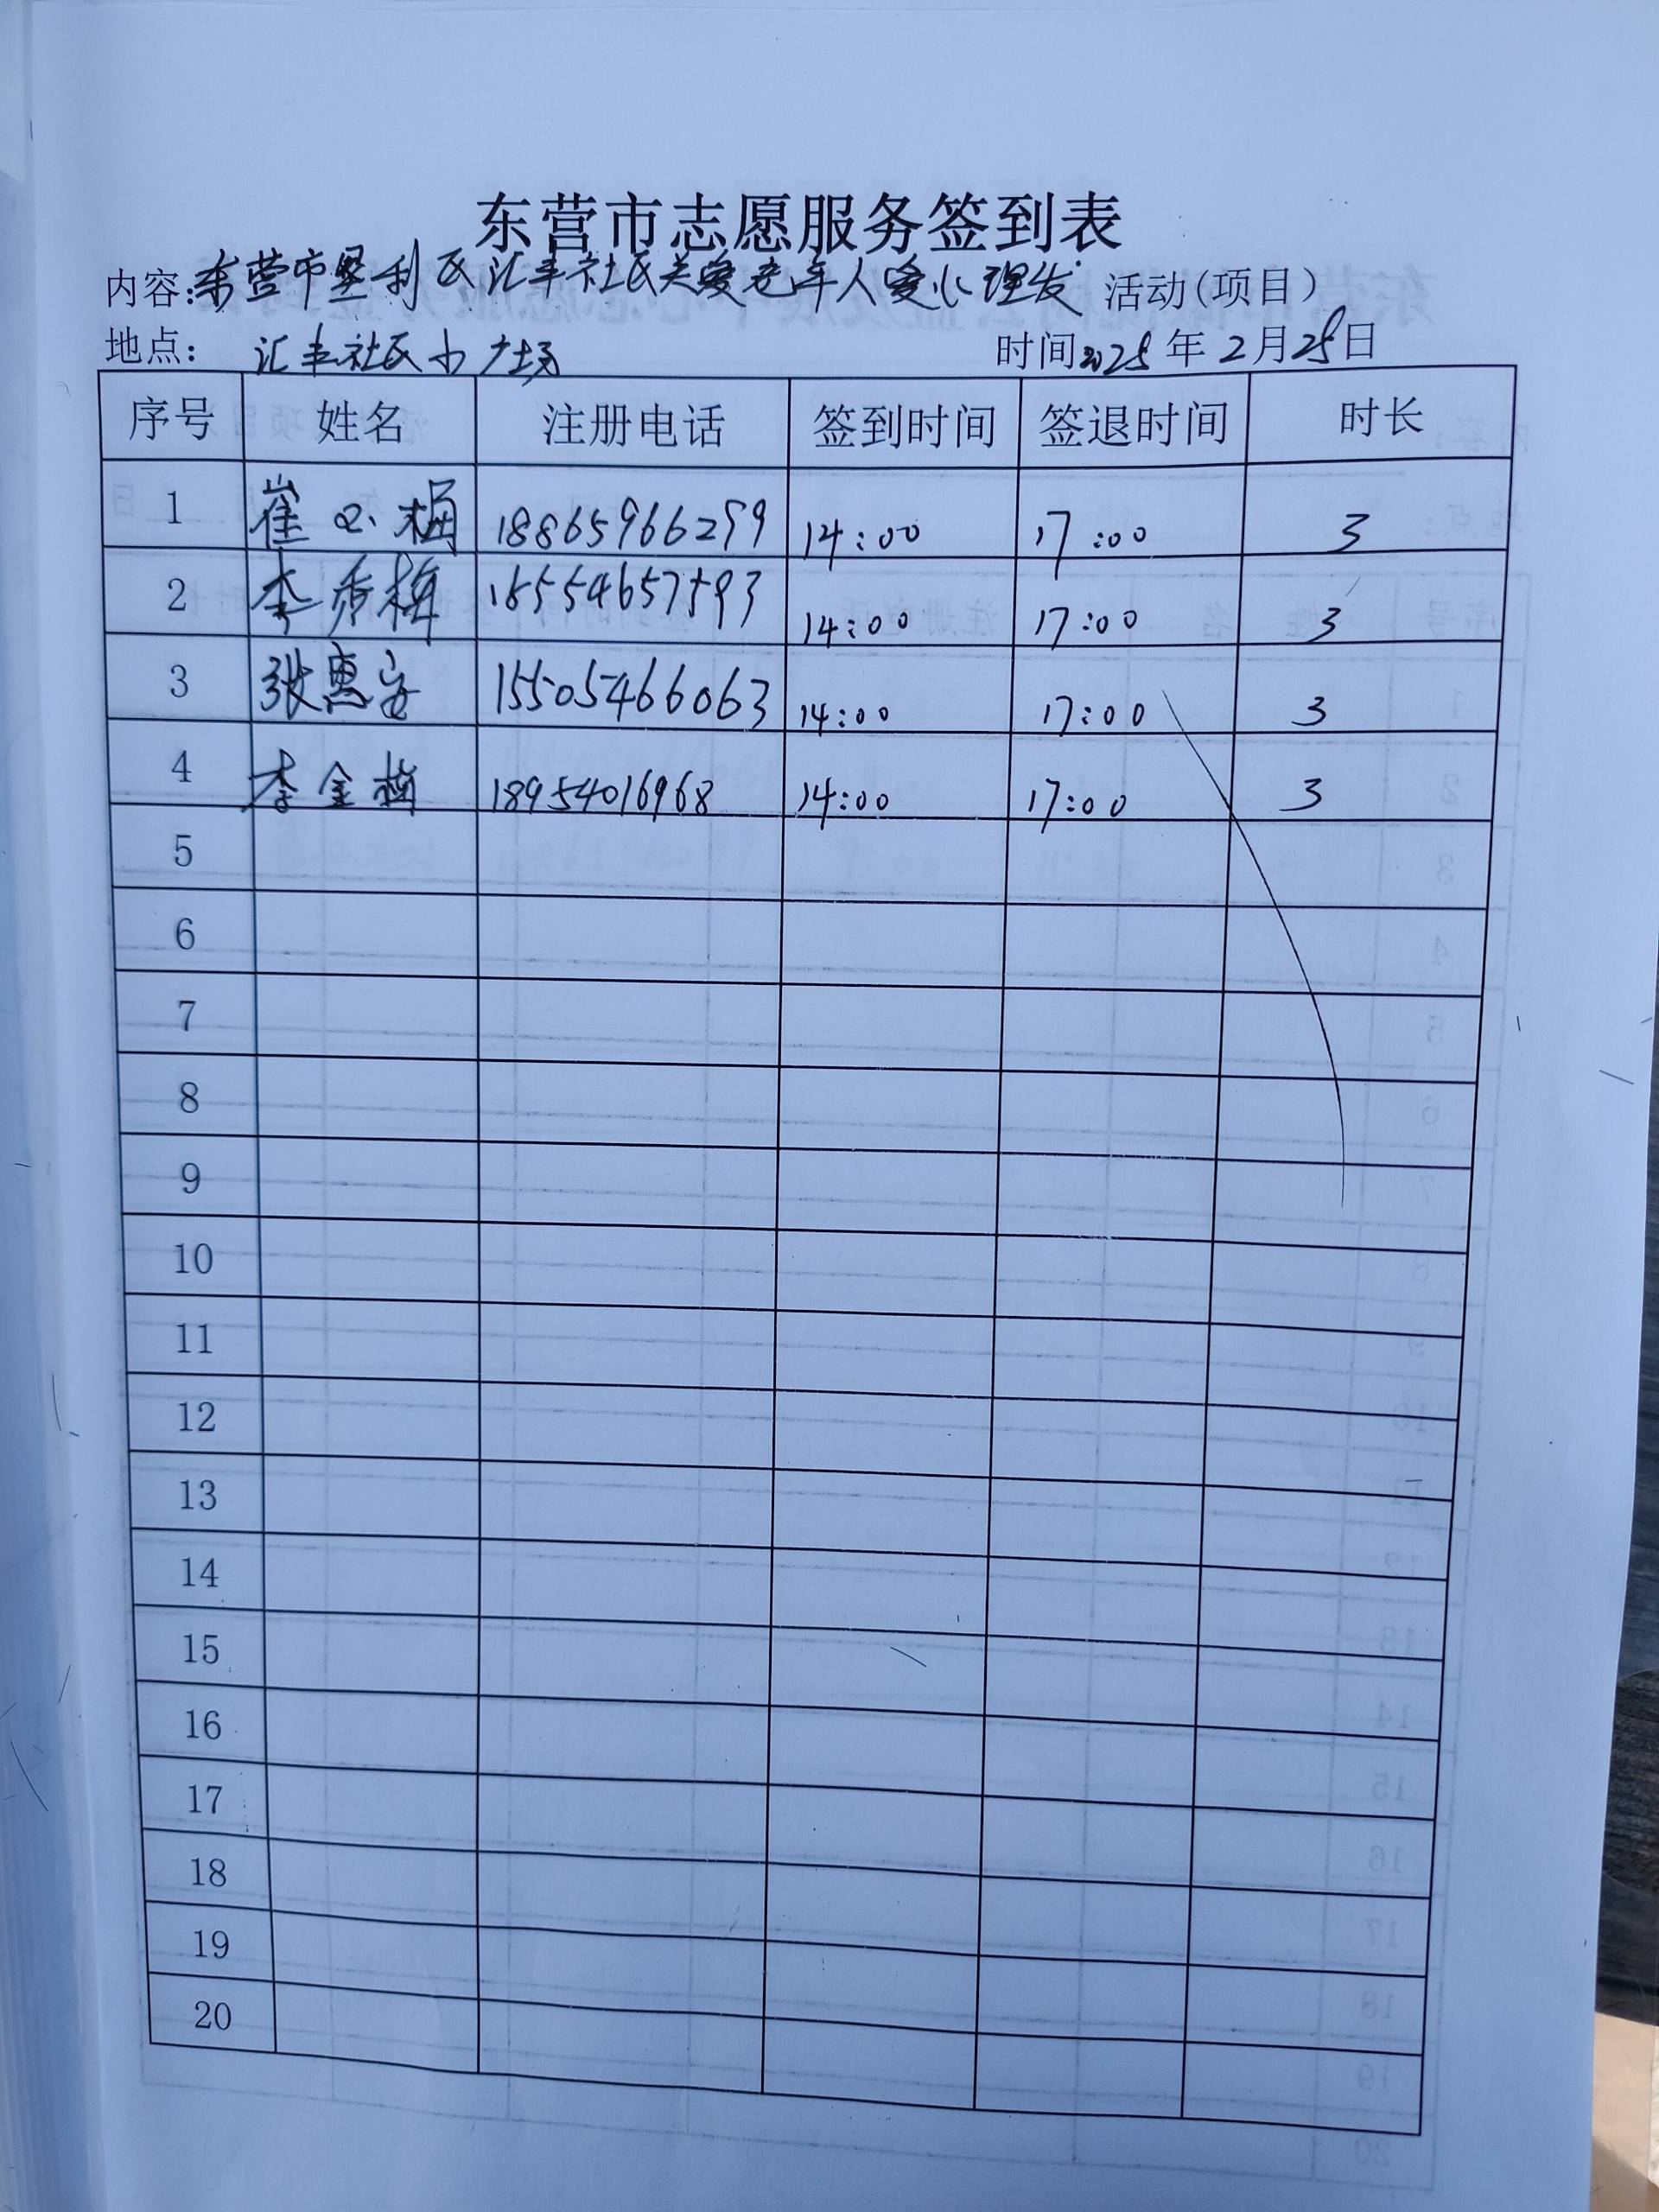 东营市志愿服务签到表
内容:东营市垦利区汇丰社区关爱老年人爱心理发 活动(项目)
地点: 汇丰社区小广场 时间2025年2月25日
序号 姓名 注册电话 签到时间 签退时间 时长
1 崔 梅 18865966299 14:00 17:00 3
2 李秀梅 14:00 17:00 3
3 张惠 15505466063 14:00 17:00 3
4 李金梅 18954016968 14:00 17:00 3
5
6
7
8
9
10
11
12
13
14
15
16
17
18
19
20